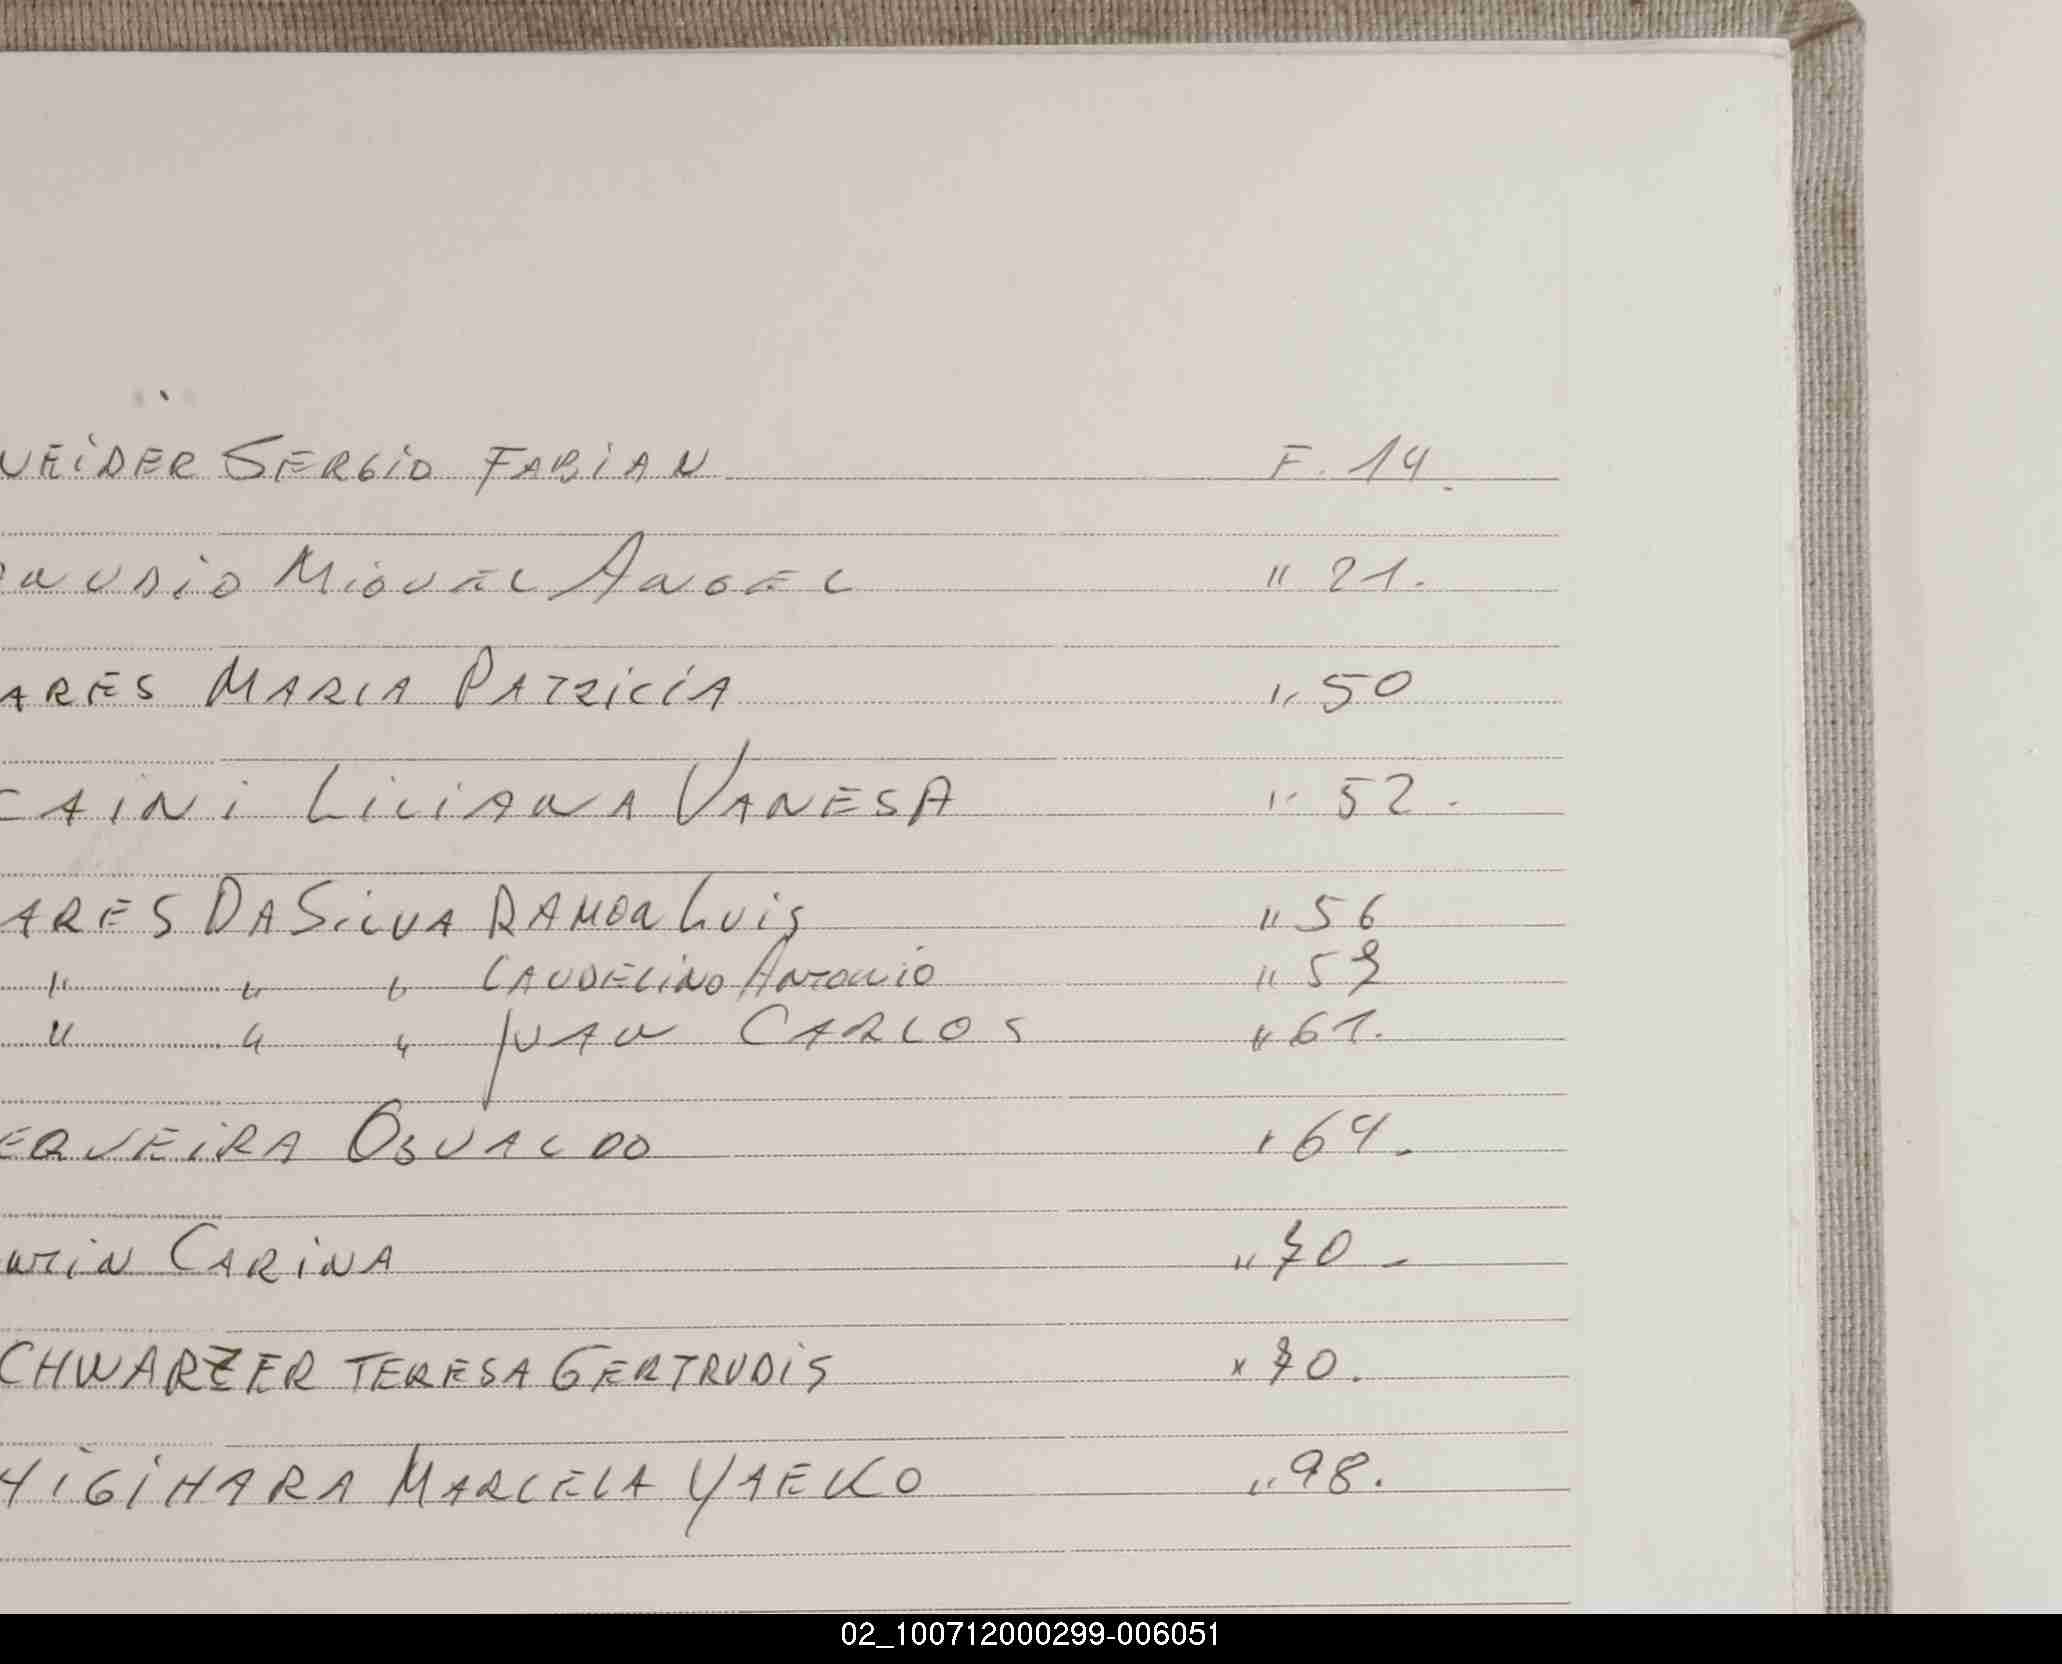 NEIDER SERGIO FABIAN F. 14.
NUDIO MIGUEL ANGEL " 21.
ARES MARIA PATRICIA " 50
CAINI LILIANA VANESA " 52.
ARES DA SILVA RAMON LUIS " 56
" " " CAUDELINO ANTONIO "
" " " JUAN CARLOS " 61.
ERQUEIRA OSVALDO " 64.
CARINA " 70 -
CHWARZER TERESA GERTRUDIS " 70.
HIGIHARA MARCELA YAEKO " 98.
02_100712000299-006051